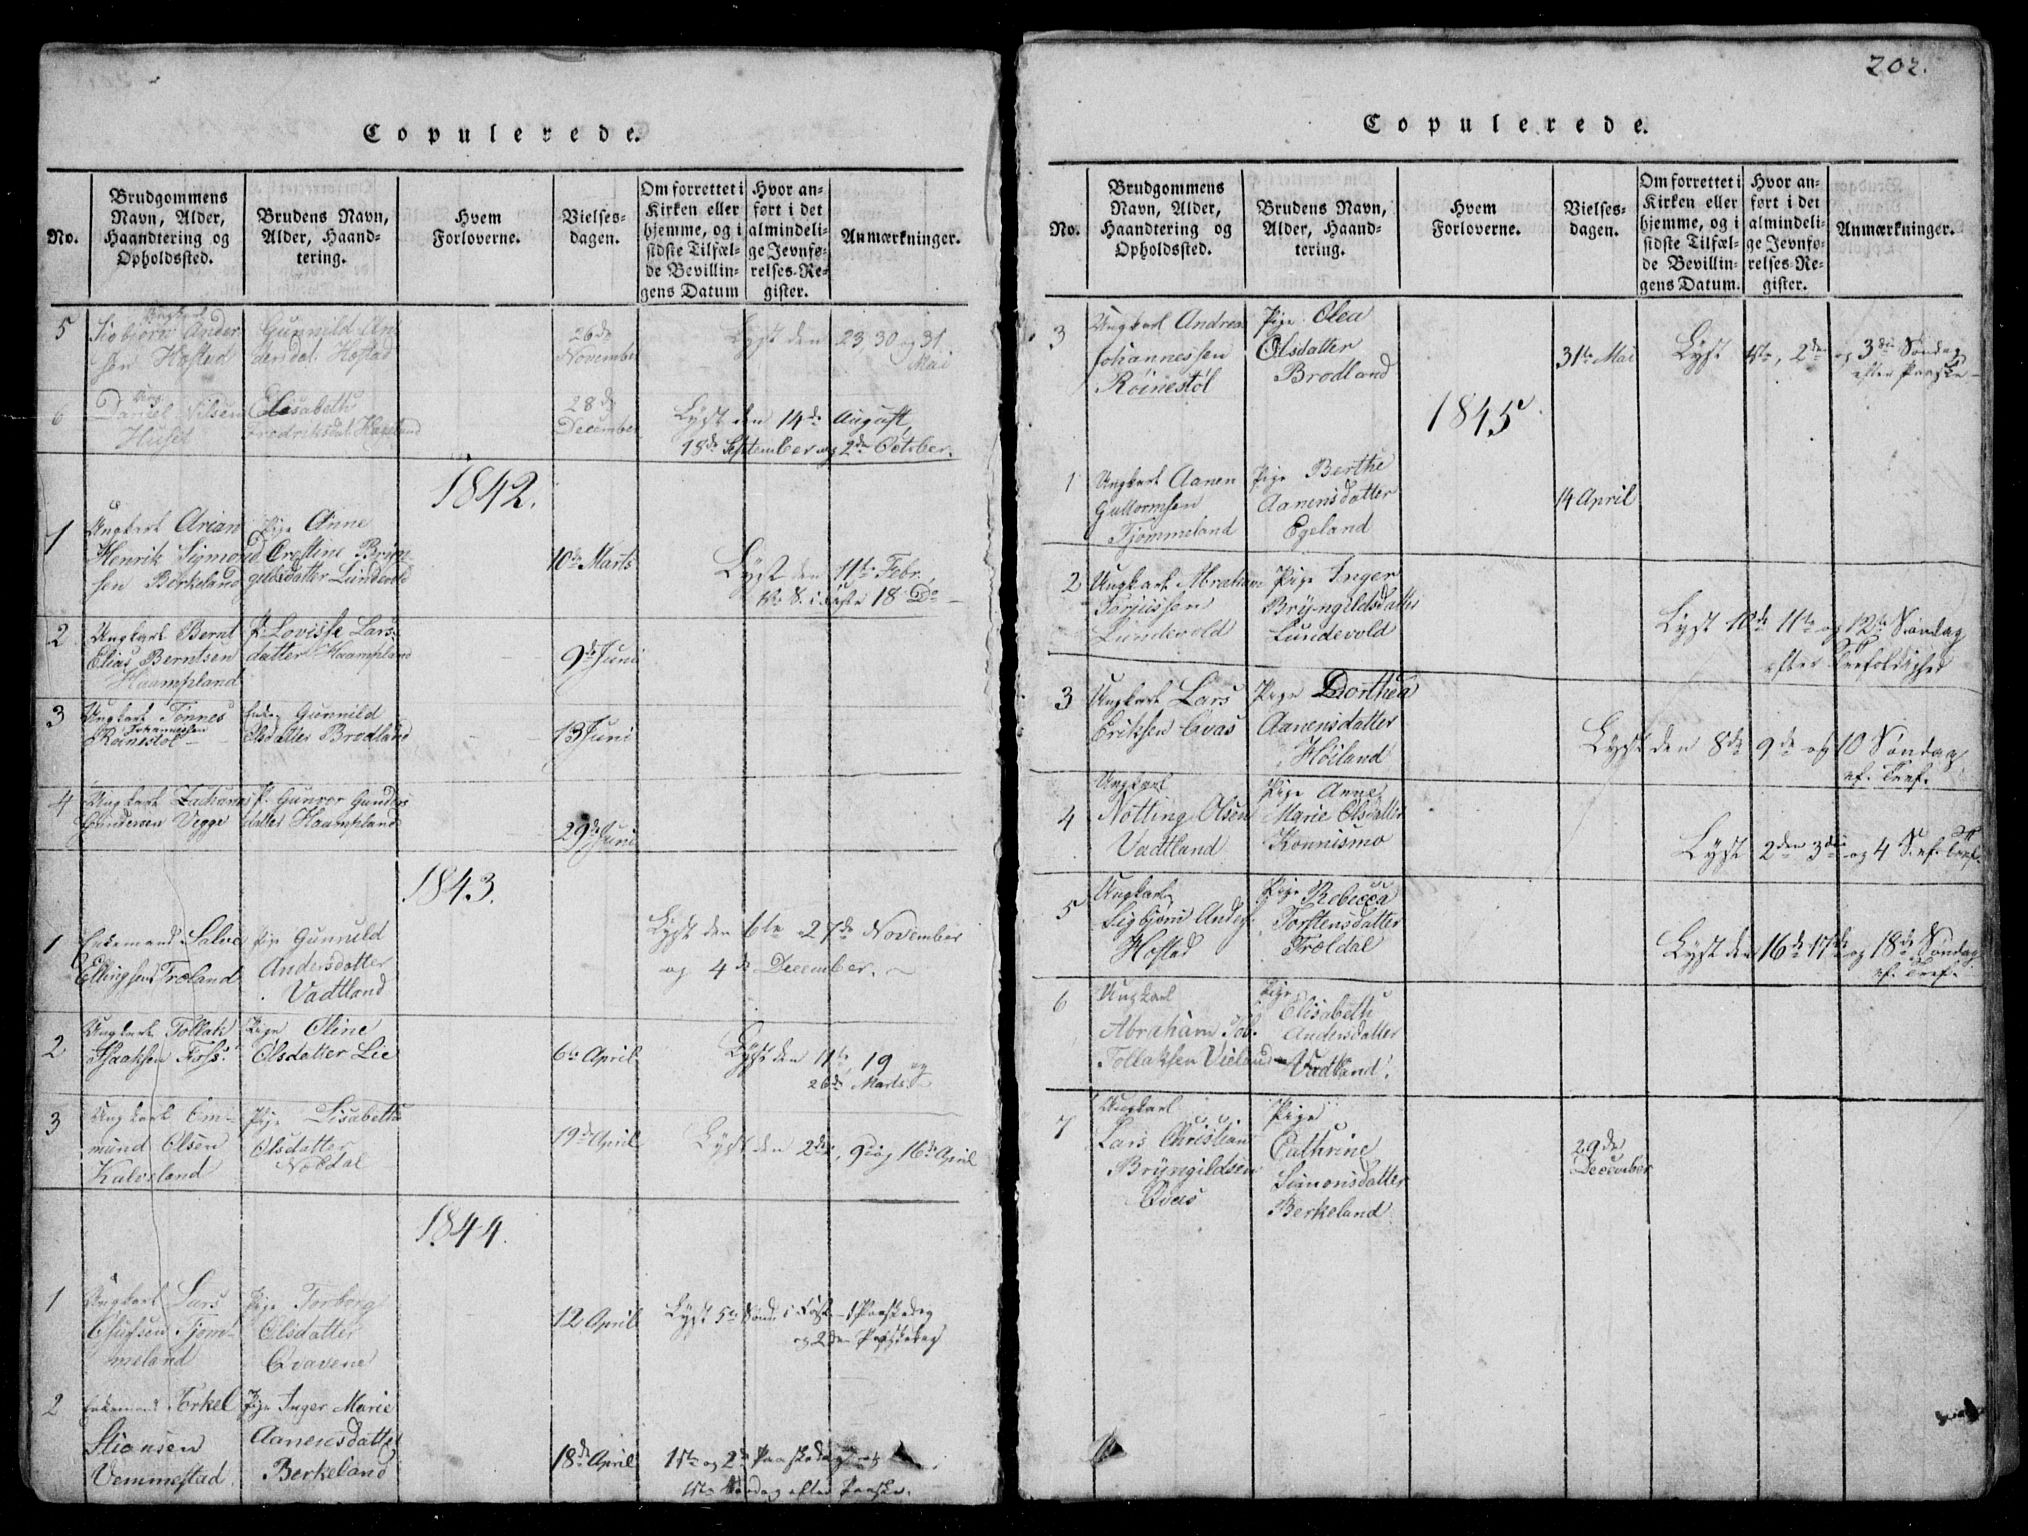 Copulerede.
No.
Brudgommens Navn, Alder, Haandtering og Opholdssted.
Brudens Navn, Alder, Haandtering.
Hvem Forloverne.
Vielsesdagen.
Om forrettet i Kirken eller hjemme, og i sidste Tilfælde Bevillingens Datum
Hvor anført i det almindelige Jevnførelses-Register.
Anmærkninger.
5
Ungkarl
Sigbjørn Ander Gunnild An
sen Hofstad dersdat. Hofstad
26de November
Lyst den 23, 30 og 31
Mai
6
Ung.
Daniel Nilsen Elisabeth
Huset Fredriksdat.
28de December
Lyst den 14de August,
18de September og 2den October.
1842.
1
Ungkarl Arian Pige Anne
Henrik Sigmond Crestine Bryn
sen Berkeland gildsdatter Lundevold
10de Marts
Lyst den 11te Febr.
18 Do
2
Ungkarl Bernt P. Lovisse Lars
Elias Berntsen datter Haampland
Haampland
9de Juni
3
Ungkarl Tønnes Enke Gunnild
Johannessen
Røinestøl Olsdatter Brodland
13 Juni
4
Ungkarl Zacharias P. Gunvor Gunders
Gundersen Vegge datter Haampland
29de Juni
1843.
1
Enkemand Salve Pige Gunnild
Ellingsen Træland Andersdatter
Vadtland
Lyst den 6te 27de November
og 4de December.
2
Ungkarl Tollak Pige Oline
Isaaksen Foss. Olsdatter Lie
6te April
Lyst den 11te, 19 og
26de Marts
3
Ungkarl Em- Pige Lisabeth
mund Olsen Olsdatter
Kalveland Noddal
19de April
Lyst den 2den, 9 og 16de April
1844.
1
Ungkarl Lars Pige Torborg
Tjom- Olsdatter
meland Qvavene
12 April
Lyst 5te Sønd. i Fast. 1 Paaskedag
og 2den Paaskedag
2
Enkemand Torkel Pige Inger Marie
Stiansen Aanensdatter
Vemmestad. Berkeland
18de April
1ste og 2de Paaskedag
1ste Søndag efter Paaske.
202.
Copulerede.
No.
Brudgommens Navn, Alder, Haandtering og Opholdssted.
Brudens Navn, Alder, Haandtering.
Hvem Forloverne.
Vielsesdagen.
Om forrettet i Kirken eller hjemme, og i sidste Tilfælde Bevillingens Datum.
Hvor anført i det almindelige Jevnførelses-Register.
Anmærkninger.
3
Ungkarl Andreas Pige Olea
Johannessen Olsdatter
Røinestøl Brodland
31te Mai
Lyst 1ste, 2den og 3die Søndag
efter Paaske
1845.
1
Ungkarl Aanen Pige Berthe
Guttormsen Aanensdatter
Tjommeland Egeland
14 April
2
Ungkarl Abraham Pige Inger
Torjussen Bryngildsdatter
Lundevold Lundevold
Lyst 10de 11te og 12te Søndag
efter Trefoldighed
3
Ungkarl Lars Pige Dorthea
Eriksen Qvas Aanensdatter
Høiland
Lyst den 8de 9de og 10 Søndag
ef. Tref.
4
Ungkarl Pige Anne
Notting Olsen Marie Olsdatter
Vadtland Konnismo
Lyst 2den 3die og 4 S. ef. Tref.
5
Ungkarl Pige Rebecca
Sigbjørn Anders. Torstensdatter
Hofstad Trældal
Lyst den 16de 17de og 18de Søndag
ef. Tref.
6
Ungkarl Pige
Abraham Tob. Elisabeth
Tollaksen Vieland Andersdatter
Vadtland.
7
Ungkarl Pige
Lars Christian Cathrine
Bryngildsen Simonsdatter
Qvas Berkeland
29de December